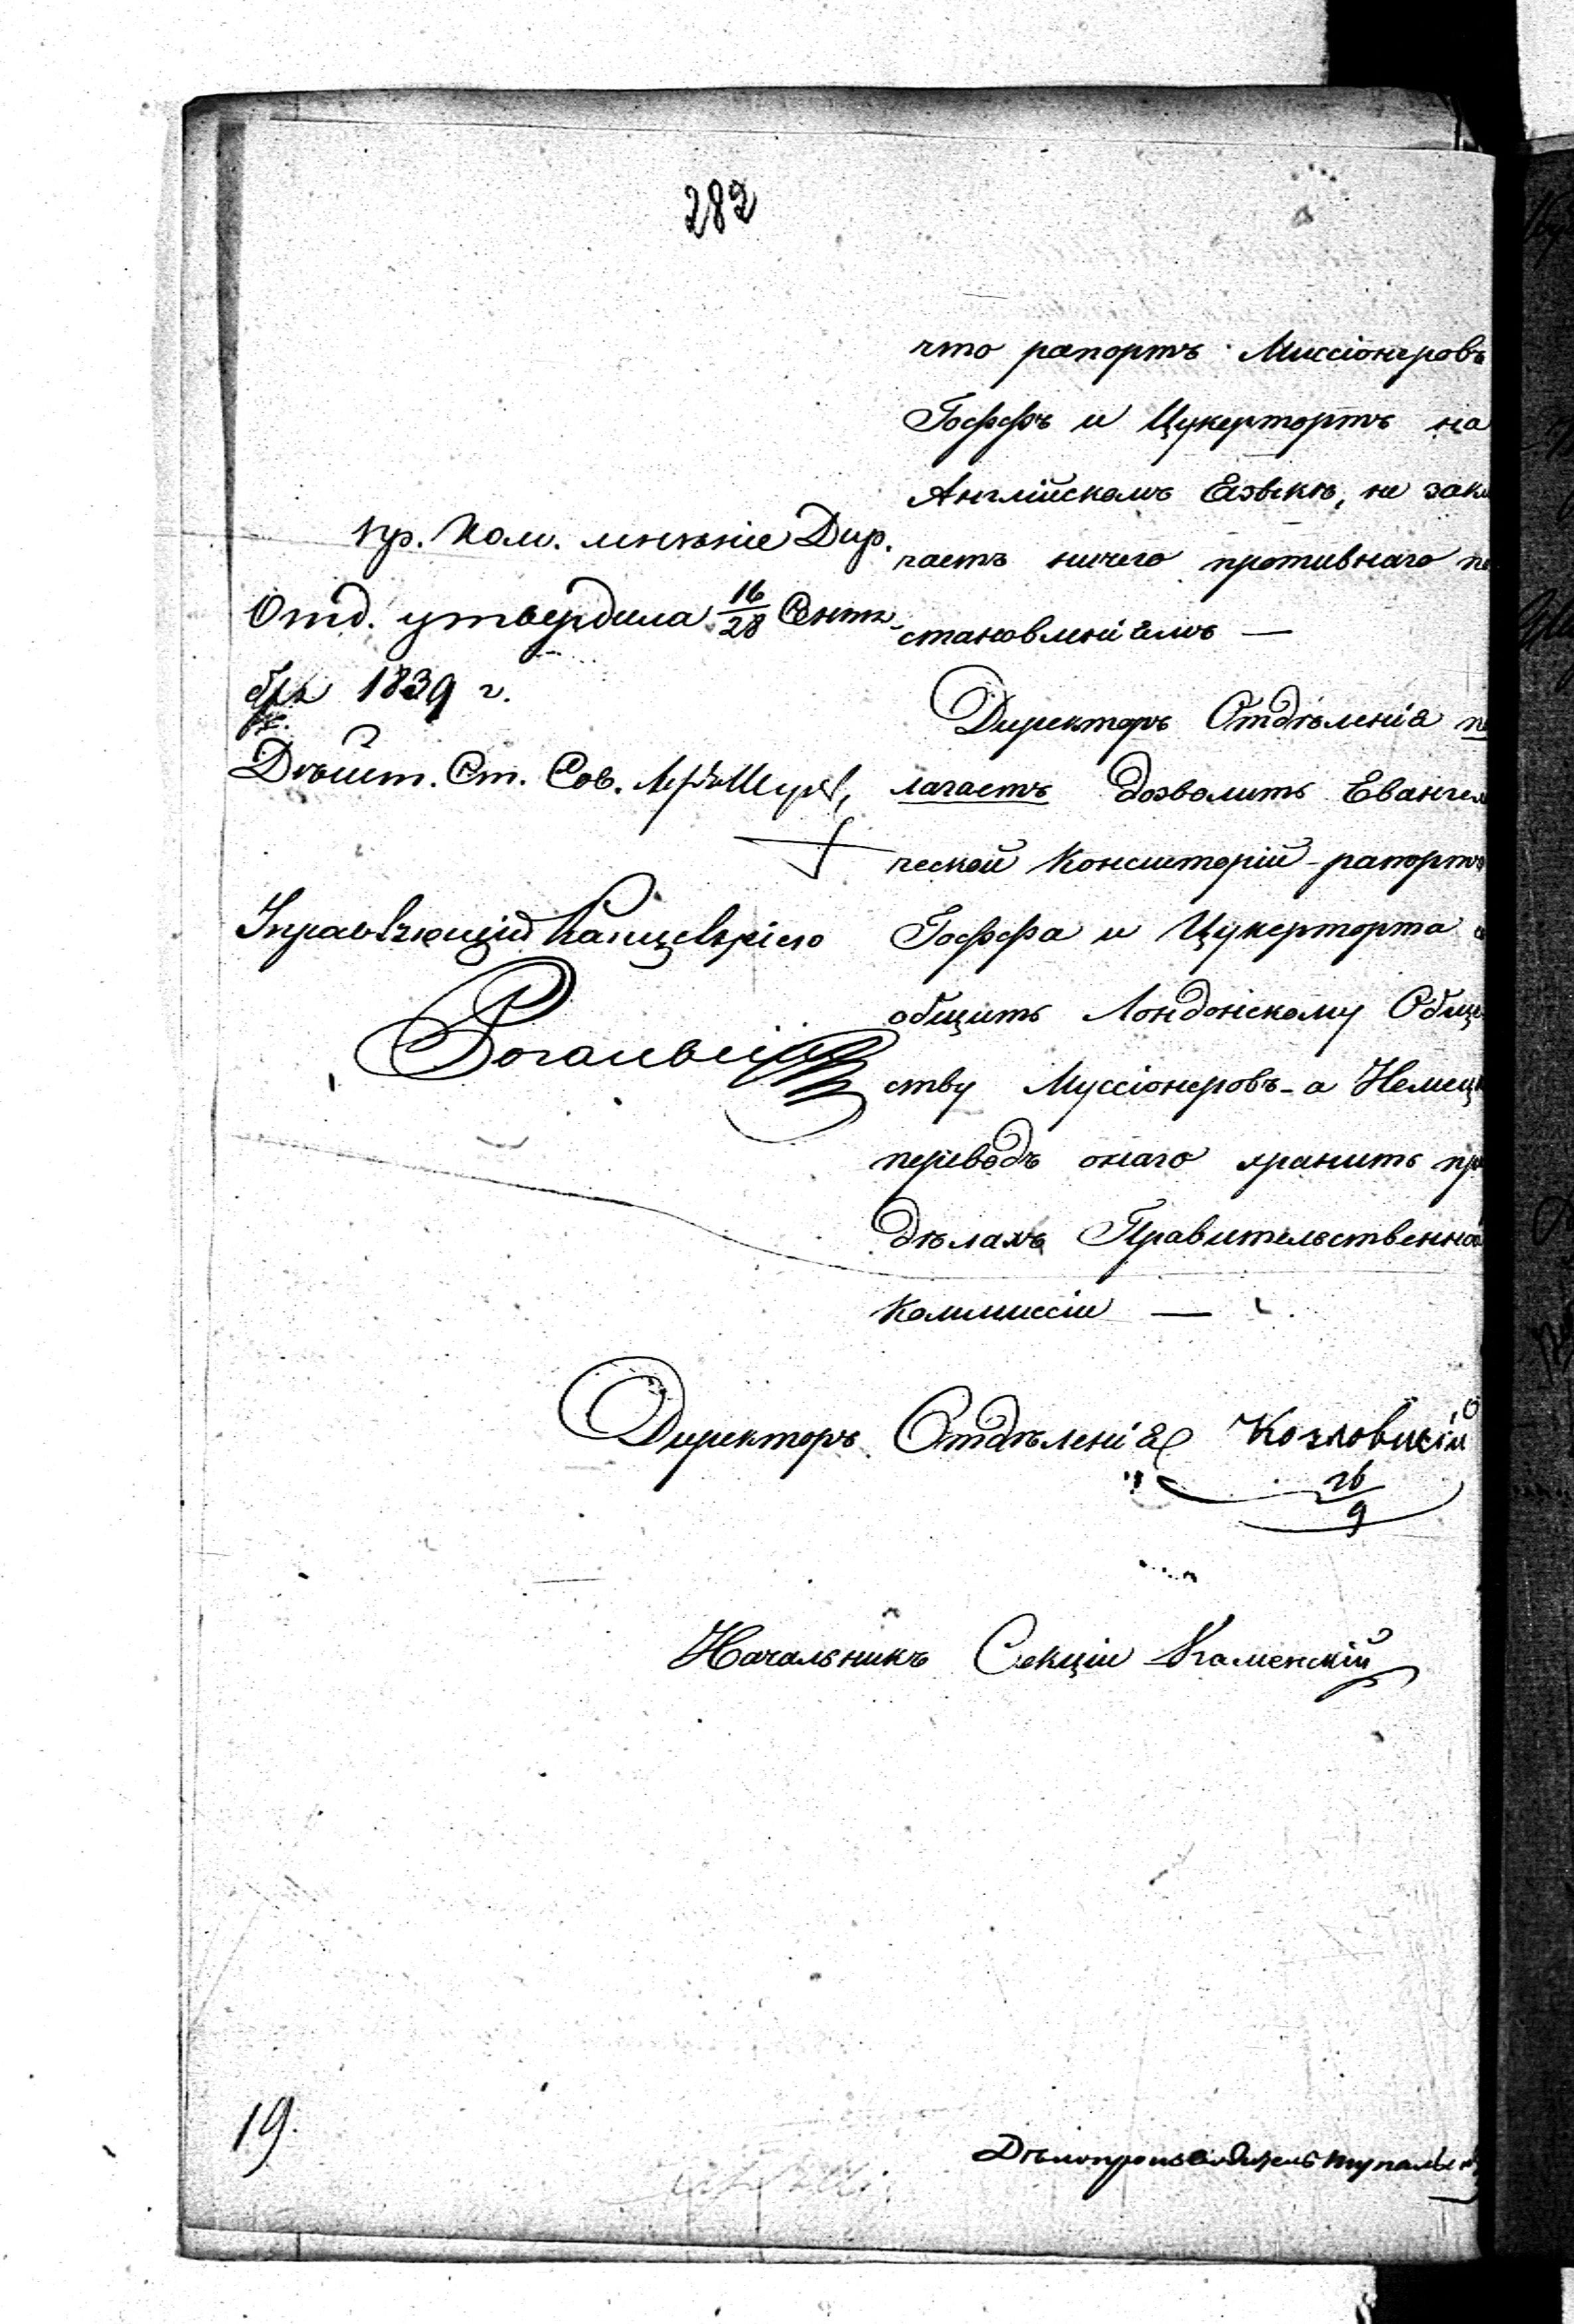 282
что рапортъ Миссіонеровъ
Гоффъ и Цукертортъ на
Англійскомъ Языкѣ, не зак
чаетъ ничего противнаго по
становленіямъ —
Директоръ Отдѣленія по
лагаетъ дозволить Евангел
ческой Консисторіи - рапортъ
Гоффа и Цукерторта со
общить Лондонскому Обще
ству Мусіонеровъ - а Немецк
переводъ онаго хранить при
дѣлахъ Правительственной
Коммиссіи —
Пр. Ком. мнѣніе Дир.
Отд. утвердила 16/28 Сентя-
бря 1839 г.
Дѣйст. Ст. Сов.
Управляющій Канцеляріею
Директоръ Отдѣленія Козловскій
26/9
Начальникъ Секціи Каменскій
19.
Дѣлопроизводитель